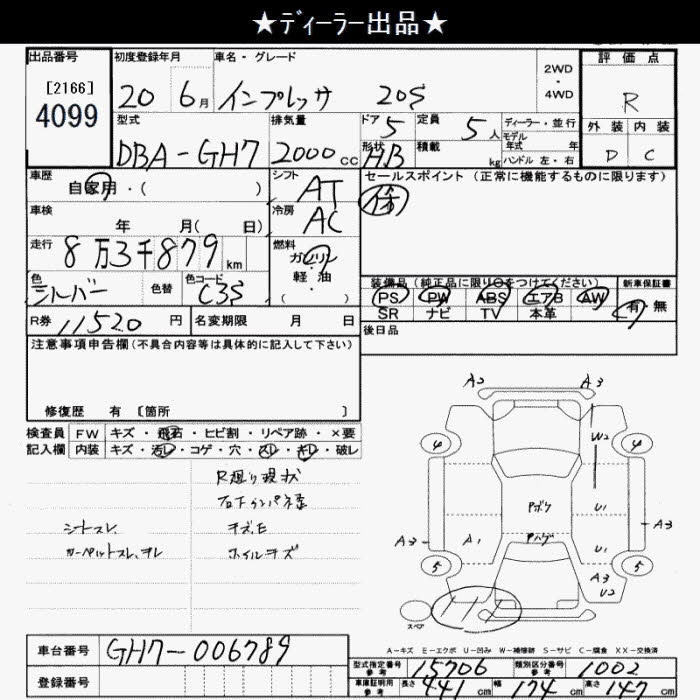 ★ディーラー出品★
出品番号 初度登録年月 車名・グレード 2WD・4WD 評価点
[2166] 20 6月 インプレッサ 20S R
4099
型式 排気量 ドア 5 定員 5人 ディーラー・並行 外装 内装
モデル年式 年
DBA-GH7 2000cc 形状 HB 積載 kg ハンドル 左・右 D C
車歴 シフト セールスポイント (正常に機能するものに限ります)
自家用・( ) AT
車検 冷房
年 月( 日) AC
走行 燃料
8万3千879km ガソリン 軽・油 ・( )
色 色替 色コード 装備品(純正品に限り○をつけてください) 新車保証書
シルバー C3S PS PW ABS エアB AW 有 無
SR ナビ TV 本革
R券 11520円 名変期限 月 日 後日品
注意事項申告欄(不具合内容等は具体的に記入して下さい)
修復歴 有 [箇所 ]
検査員 FW キズ・飛石・ヒビ割・リペア跡・×要
記入欄 内装 キズ・汚レ・コゲ・穴・スレ・キレ・破レ
R廻り現状
シートスレ、 キズ、E
カーペットスレ、ヨレ ホイルキズ
A2 A3
4 W2 4
Pボウ U1
A3 A1 A3
U1
5 A3 5
U2
スペア
A-キズ E-エクボ U-凹み W-補修跡 S-サビ C-腐食 XX-交換済
車台番号 GH7-006789
型式指定番号 参考 15706 類別区分番号 参考 1002
登録番号 車庫証明用 参考 長さ 441cm 幅 174cm 高さ 147cm